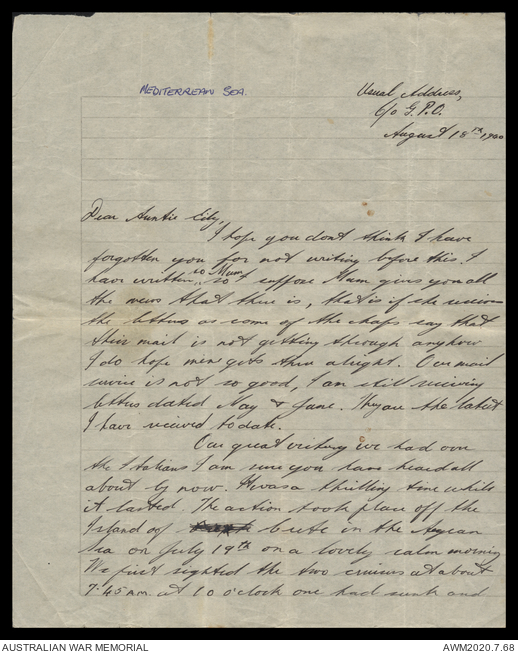 MEDITERREAN SEA.
Usual Address,
C/o G.P.O.
August 18th 1940
Dear Auntie
I hope you dont think I have
forgotten you for not writing before this. I
have written so Mum so I suppose Mum gives you all
the news that there is, that is if she receives
the letters as some of the chaps say that
their mail is not getting through anyhow
I do hope mine gets thru alright. Our mail
service is not so good, I am still receiving
letters dated May & June. They are the latest
I have received to date.
Our great victory we had over
the Italians I am sure you have heard all
about by now. It was a thrilling time while
it lasted. The action took place off the
Island of Crete in the Agean
Sea on July 19th on a lovely calm morning
We first sighted the two cruisers at about
7.45 A.M. at 10 o'clock one had sunk and
AUSTRALIAN WAR MEMORIAL
AWM2020.7.68